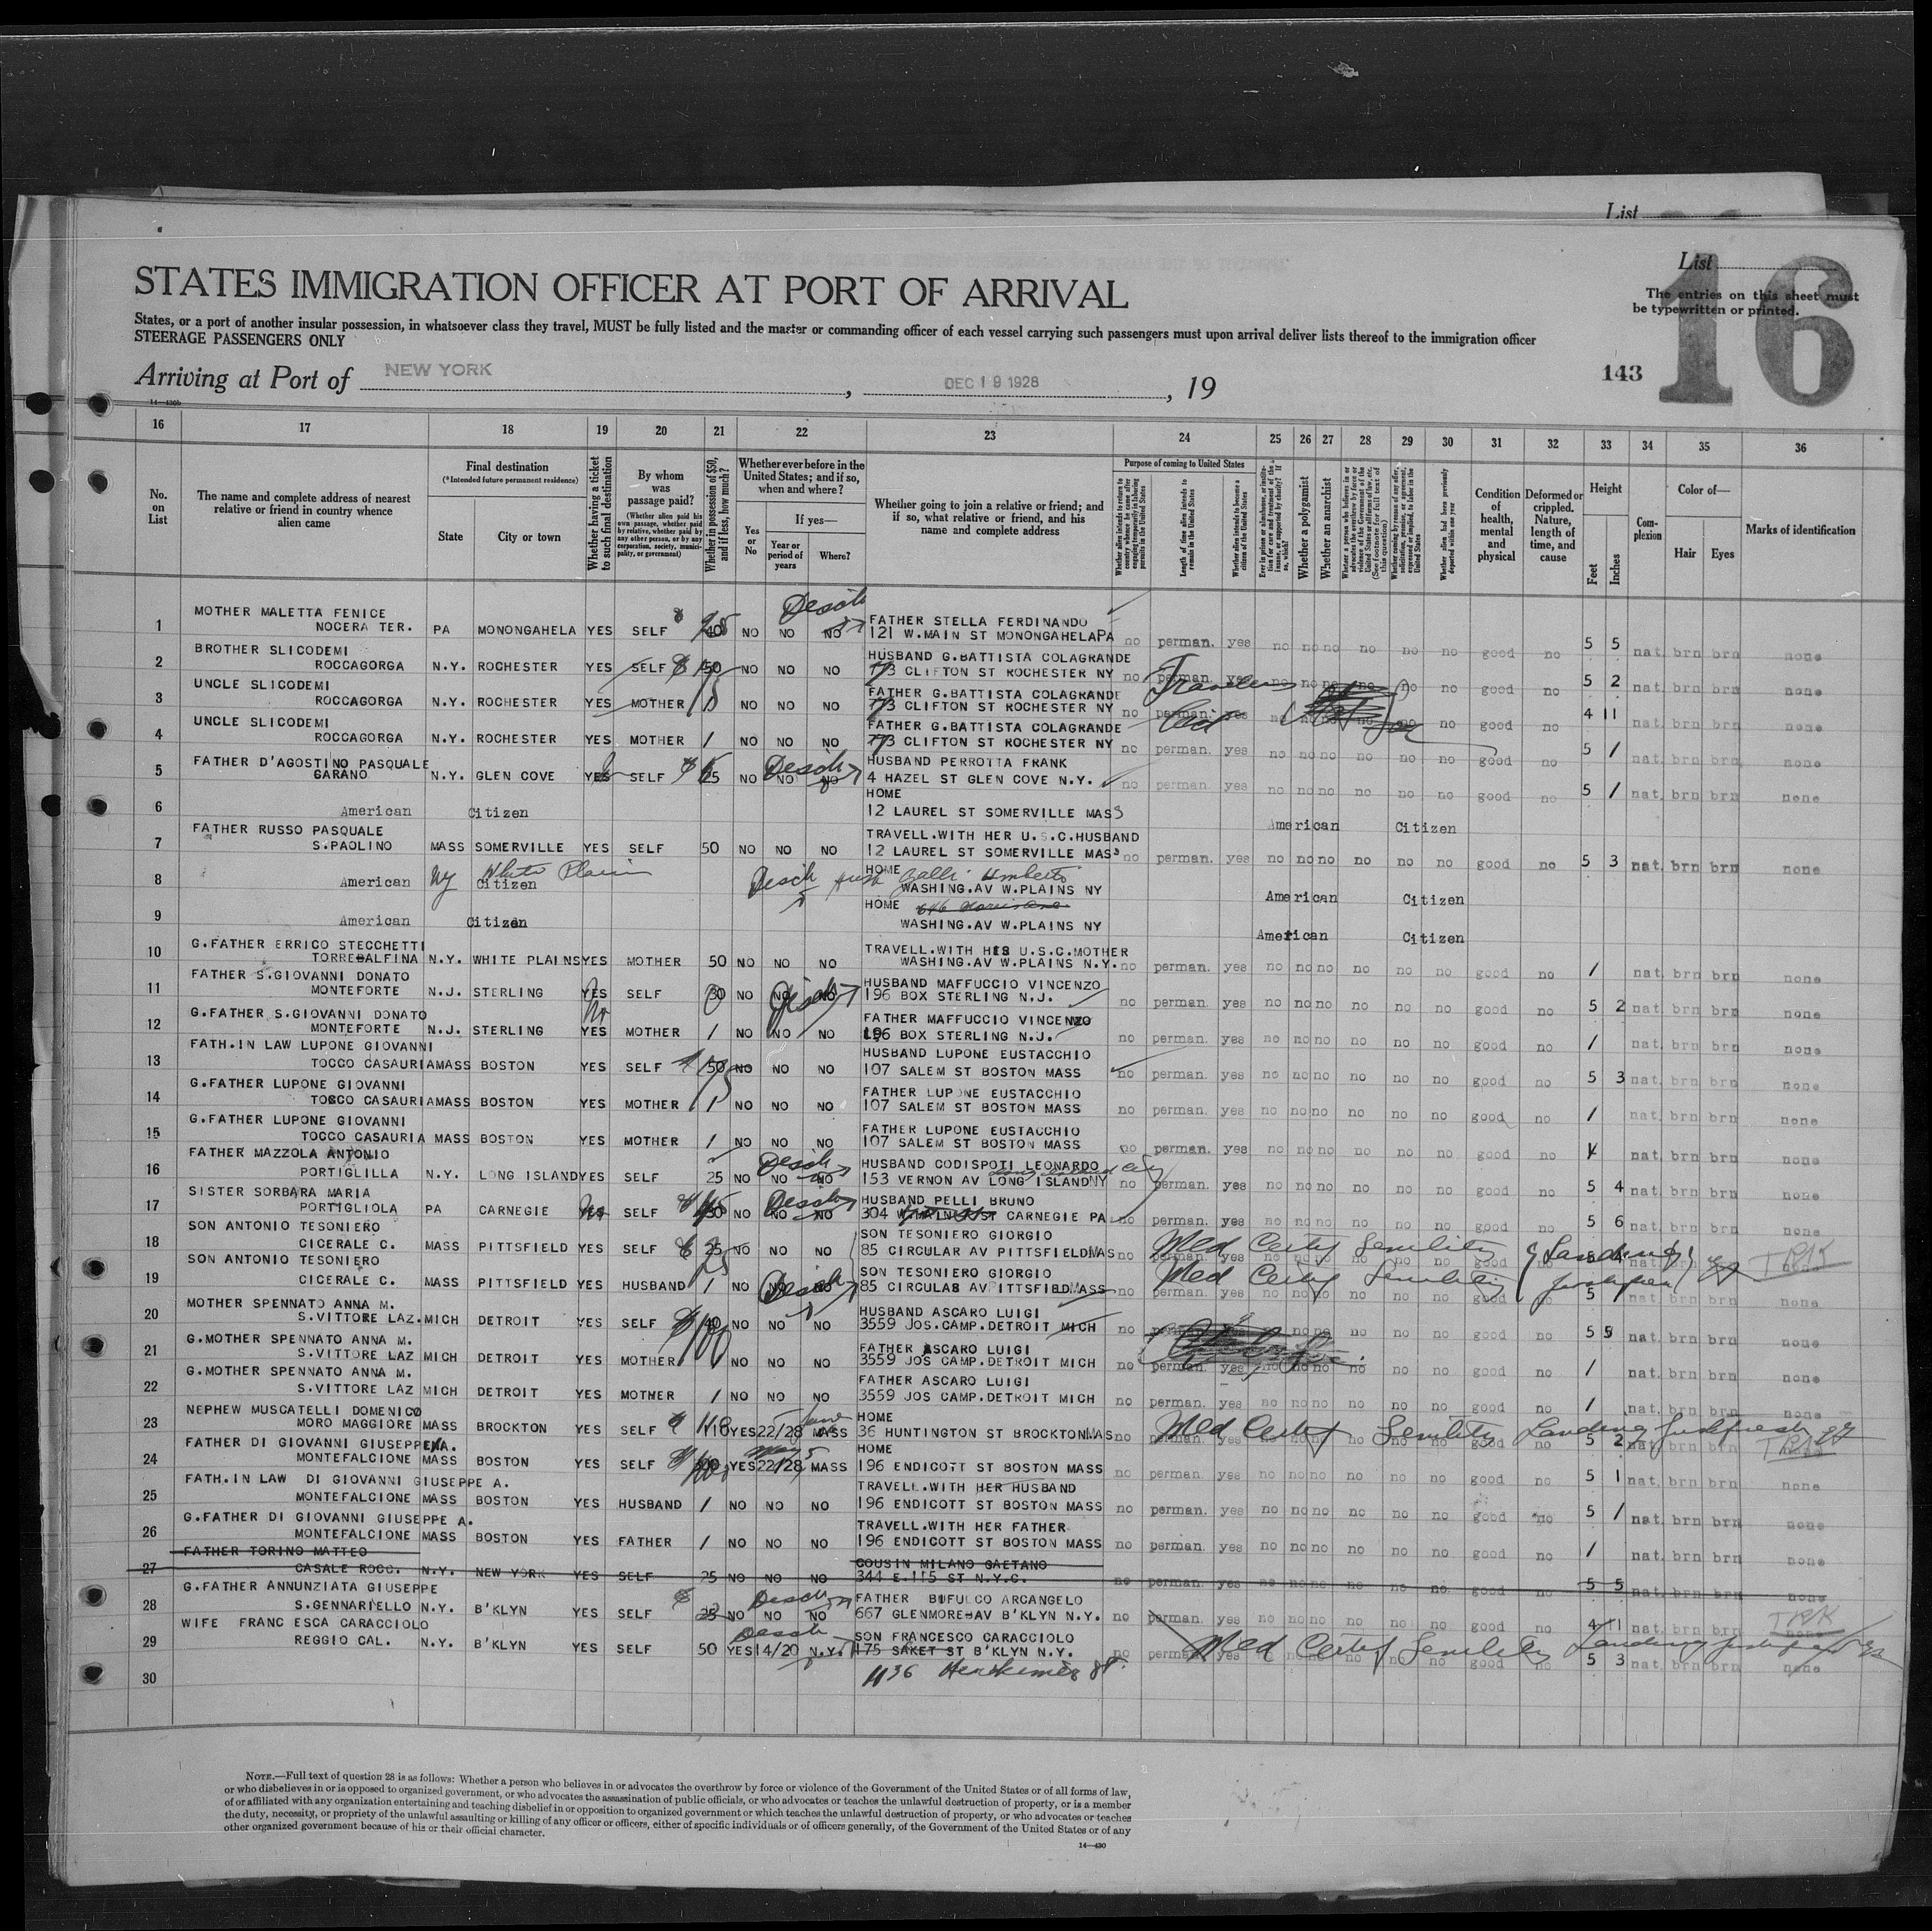 List
List
16
The entries on this sheet must
be typewritten or printed.
STATES IMMIGRATION OFFICER AT PORT OF ARRIVAL
States, or a port of another insular possession, in whatsoever class they travel, MUST be fully listed and the master or commanding officer of each vessel carrying such passengers must upon arrival deliver lists thereof to the immigration officer
STEERAGE PASSENGERS ONLY
Arriving at Port of NEW YORK, DEC 19 1928, 19
143
14—430b
16 17 18 19 20 21 22 23 24 25 26 27 28 29 30 31 32 33 34 35 36
No. on List
The name and complete address of nearest relative or friend in country whence alien came
Final destination
(*Intended future permanent residence)
State
City or town
Whether having a ticket to such final destination
By whom was passage paid?
(Whether alien paid his own passage, whether paid by relative, whether paid by any other person, or by any corporation, society, municipality, or government)
Whether in possession of $50, and if less, how much?
Whether ever before in the United States; and if so, when and where?
Yes or No
If yes—
Year or period of years
Where?
Whether going to join a relative or friend; and if so, what relative or friend, and his name and complete address
Purpose of coming to United States
Whether alien intends to return to country whence he came after engaging temporarily in laboring pursuits in the United States
Length of time alien intends to remain in the United States
Whether alien intends to become a citizen of the United States
Whether a polygamist
Whether an anarchist
Whether alien had been previously deported within one year
Condition of health, mental and physical
Deformed or crippled. Nature, length of time, and cause
Height
Feet
Inches
Complexion
Color of—
Hair
Eyes
Marks of identification
MOTHER MALETTA FENICE Desch FATHER STELLA FERDINANDO
1 NOCERA TER. PA MONONGAHELA YES SELF 40 NO NO NO 121 W.MAIN ST MONONGAHELA PA no perman. yes no no no no no no good no 5 5 nat. brn brn none
BROTHER SLICODEMI HUSBAND G.BATTISTA COLAGRANDE
2 ROCCAGORGA N.Y. ROCHESTER YES SELF 50 NO NO NO 73 CLIFTON ST ROCHESTER NY no perman. yes no no no no no no good no 5 2 nat. brn brn none
UNCLE SLICODEMI FATHER G.BATTISTA COLAGRANDE
3 ROCCAGORGA N.Y. ROCHESTER YES MOTHER / NO NO NO 73 CLIFTON ST ROCHESTER NY no perman. yes no no no no no no good no 4 11 nat. brn brn none
UNCLE SLICODEMI FATHER G.BATTISTA COLAGRANDE
4 ROCCAGORGA N.Y. ROCHESTER YES MOTHER / NO NO NO 73 CLIFTON ST ROCHESTER NY no perman. yes no no no no no no good no 5 / nat. brn brn none
FATHER D'AGOSTINO PASQUALE Desch HUSBAND PERROTTA FRANK
5 GARANO N.Y. GLEN COVE YES SELF 25 NO NO NO 4 HAZEL ST GLEN COVE N.Y. no perman yes no no no no no no good no 5 / nat. brn brn none
HOME
6 American Citizen 12 LAUREL ST SOMERVILLE MASS American Citizen
FATHER RUSSO PASQUALE TRAVELL.WITH HER U.S.C.HUSBAND
7 S.PAOLINO MASS SOMERVILLE YES SELF 50 NO NO NO 12 LAUREL ST SOMERVILLE MASS no perman. yes no no no no no no good no 5 3 nat. brn brn none
NY White Plains Desch HOME Galli Umberto
8 American Citizen WASHING.AV W.PLAINS NY American Citizen
HOME
9 American Citizen WASHING.AV W.PLAINS NY American Citizen
G.FATHER ERRICO STECCHETTI TRAVELL.WITH HIS U.S.C.MOTHER
10 TORREBALFINA N.Y. WHITE PLAINS YES MOTHER 50 NO NO NO WASHING.AV W.PLAINS N.Y. no perman. yes no no no no no no good no / nat. brn brn none
FATHER S.GIOVANNI DONATO Desch HUSBAND MAFFUCCIO VINCENZO
11 MONTEFORTE N.J. STERLING YES SELF 30 NO NO NO 196 BOX STERLING N.J. no perman. yes no no no no no no good no 5 2 nat. brn brn none
G.FATHER S.GIOVANNI DONATO no FATHER MAFFUCCIO VINCENZO
12 MONTEFORTE N.J. STERLING YES MOTHER / NO NO NO 196 BOX STERLING N.J. no perman. yes no no no no no no good no / nat. brn brn none
FATH.IN LAW LUPONE GIOVANNI HUSBAND LUPONE EUSTACCHIO
13 TOCCO CASAURIA MASS BOSTON YES SELF 50 NO NO NO 107 SALEM ST BOSTON MASS no perman. yes no no no no no no good no 5 3 nat. brn brn none
G.FATHER LUPONE GIOVANNI FATHER LUPONE EUSTACCHIO
14 TOCCO CASAURIA MASS BOSTON YES MOTHER / NO NO NO 107 SALEM ST BOSTON MASS no perman. yes no no no no no no good no / nat. brn brn none
G.FATHER LUPONE GIOVANNI FATHER LUPONE EUSTACCHIO
15 TOCCO CASAURIA MASS BOSTON YES MOTHER / NO NO NO 107 SALEM ST BOSTON MASS no perman. yes no no no no no no good no nat. brn brn none
FATHER MAZZOLA ANTONIO Desch HUSBAND CODISPOTI LEONARDO
16 PORTIGLILLA N.Y. LONG ISLAND YES SELF 25 NO NO NO 153 VERNON AV LONG ISLAND NY no perman. yes no no no no no no good no 5 4 nat. brn brn none
SISTER SORBARA MARIA Desch HUSBAND PELLI BRUNO
17 PORTIGLIOLA PA CARNEGIE SELF 30 NO NO NO 304 W.MAIN ST CARNEGIE PA no perman. yes no no no no no no good no 5 6 nat. brn brn none
SON ANTONIO TESONIERO SON TESONIERO GIORGIO Med Certf Senility Landing
18 CICERALE C. MASS PITTSFIELD YES SELF 25 NO NO NO 85 CIRCULAR AV PITTSFIELD MAS no perman. yes no no no no no no good no 5 4 nat brn brn none
SON ANTONIO TESONIERO Desch SON TESONIERO GIORGIO Med Certf Senility
19 CICERALE C. MASS PITTSFIELD YES HUSBAND / NO NO NO 85 CIRCULAR AV PITTSFIELD MASS no perman. yes no no no no no no good no 5 / nat. brn brn none
MOTHER SPENNATO ANNA M. HUSBAND ASCARO LUIGI
20 S.VITTORE LAZ. MICH DETROIT YES SELF 40 NO NO NO 3559 JOS.CAMP.DETROIT MICH no no no no no no good no 5 5 nat. brn brn none
G.MOTHER SPENNATO ANNA M. FATHER ASCARO LUIGI
21 S.VITTORE LAZ MICH DETROIT YES MOTHER / NO NO NO 3559 JOS CAMP.DETROIT MICH no perman. yes no no no no no no good no / nat. brn brn none
G.MOTHER SPENNATO ANNA M. FATHER ASCARO LUIGI
22 S.VITTORE LAZ MICH DETROIT YES MOTHER / NO NO NO 3559 JOS CAMP.DETROIT MICH no perman. yes no no no no no no good no / nat. brn brn none
NEPHEW MUSCATELLI DOMENICO June HOME Med Certf Senility Landing
23 MORO MAGGIORE MASS BROCKTON YES SELF 110 YES 22/28 MASS 36 HUNTINGTON ST BROCKTON MAS no perman. yes no no no no no no good no 5 2 nat brn brn none
FATHER DI GIOVANNI GIUSEPPE A. May HOME
24 MONTEFALCIONE MASS BOSTON YES SELF YES 22/28 MASS 196 ENDICOTT ST BOSTON MASS no perman. yes no no no no no no good no 5 1 nat. brn brn none
FATH.IN LAW DI GIOVANNI GIUSEPPE A. TRAVELL.WITH HER HUSBAND
25 MONTEFALCIONE MASS BOSTON YES HUSBAND / NO NO NO 196 ENDICOTT ST BOSTON MASS no perman. yes no no no no no no good no 5 / nat. brn brn none
G.FATHER DI GIOVANNI GIUSEPPE A. TRAVELL.WITH HER FATHER
26 MONTEFALCIONE MASS BOSTON YES FATHER / NO NO NO 196 ENDICOTT ST BOSTON MASS no perman. yes no no no no no no good no / nat. brn brn none
FATHER TORINO MATTEO COUSIN MILANO GAETANO
27 CASALE ROCC. N.Y. NEW YORK YES SELF 25 NO NO NO 344 E.115 ST N.Y.C. no perman. yes no no no no no no good no 5 5 nat. brn brn none
G.FATHER ANNUNZIATA GIUSEPPE Desch FATHER BUFULCO ARCANGELO
28 S.GENNARIELLO N.Y. B'KLYN YES SELF 25 NO NO NO 667 GLENMORE AV B'KLYN N.Y. no perman. yes no no no no no no good no 4 11 nat. brn brn none
WIFE FRANC ESCA CARACCIOLO Desch SON FRANCESCO CARACCIOLO Med Certf Senility Landing
29 REGGIO CAL. N.Y. B'KLYN YES SELF 50 YES 14/20 N.Y. 175 SAKET ST B'KLYN N.Y. no perman. yes no no no no no good no 5 3 nat. brn brn none
30 1136 Herkimer St.
NOTE.—Full text of question 28 is as follows: Whether a person who believes in or advocates the overthrow by force or violence of the Government of the United States or of all forms of law,
or who disbelieves in or is opposed to organized government, or who advocates the assassination of public officials, or who advocates or teaches the unlawful destruction of property, or is a member
of or affiliated with any organization entertaining and teaching disbelief in or opposition to organized government or which teaches the unlawful destruction of property, or who advocates or teaches
the duty, necessity, or propriety of the unlawful assaulting or killing of any officer or officers, either of specific individuals or of officers generally, of the Government of the United States or of any
other organized government because of his or their official character.
14—430